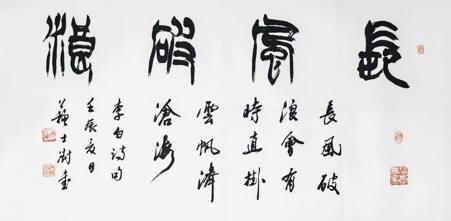 長風破浪
長風破
浪會有
時直掛
雲帆濟
滄海
李白詩句
壬辰夏月
蘇士澍書